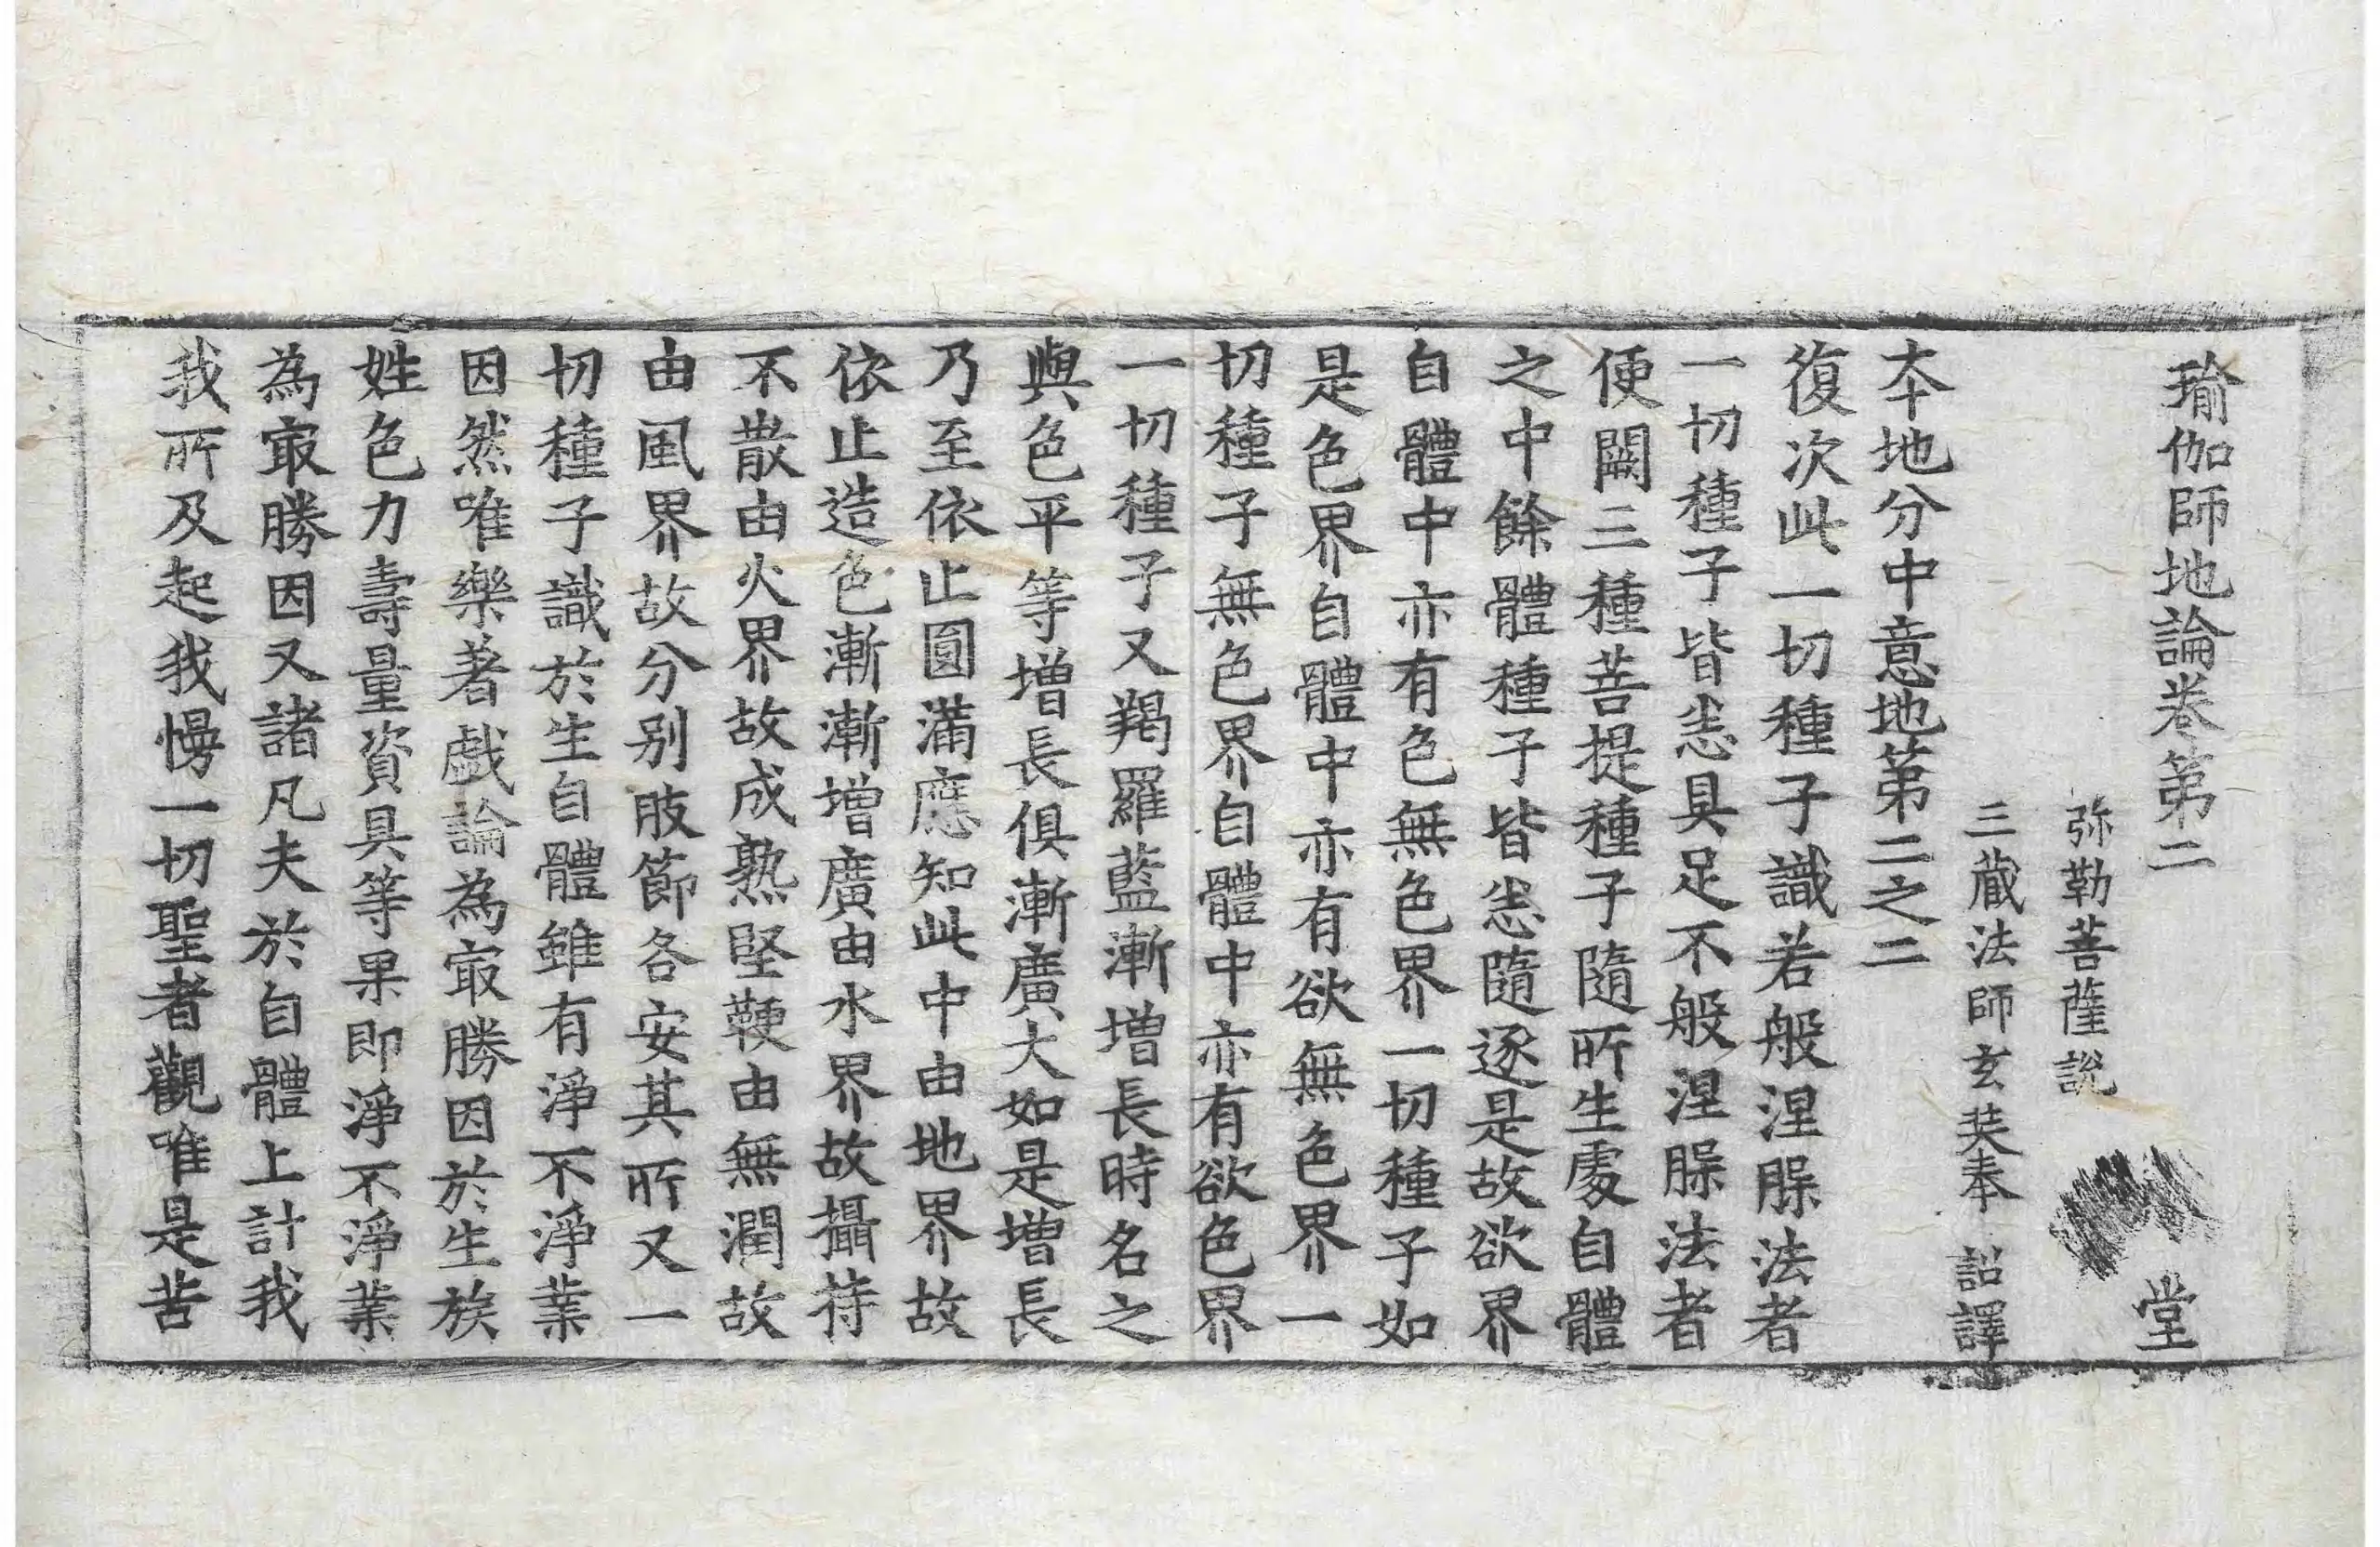 瑜伽師地論卷第二 堂
弥勒菩薩說
三藏法師玄奘奉 詔譯
本地分中意地第二之二
復次此一切種子識若般涅槃法者
一切種子皆悉具足不般涅槃法者
便闕三種菩提種子隨所生處自體
之中餘體種子皆悉隨逐是故欲界
自體中亦有色無色界一切種子如
是色界自體中亦有欲無色界一
切種子無色界自體中亦有欲色界
一切種子又羯羅藍漸增長時名之
與色平等增長俱漸廣大如是增長
乃至依止圓滿應知此中由地界故
依止造色漸漸增廣由水界故攝持
不散由火界故成熟堅鞕由無潤故
由風界故分別肢節各安其所又一
切種子識於生自體雖有淨不淨業
因然唯樂著戲論為最勝因於生族
姓色力壽量資具等果即淨不淨業
為最勝因又諸凡夫於自體上計我
我所及起我慢一切聖者觀唯是苦